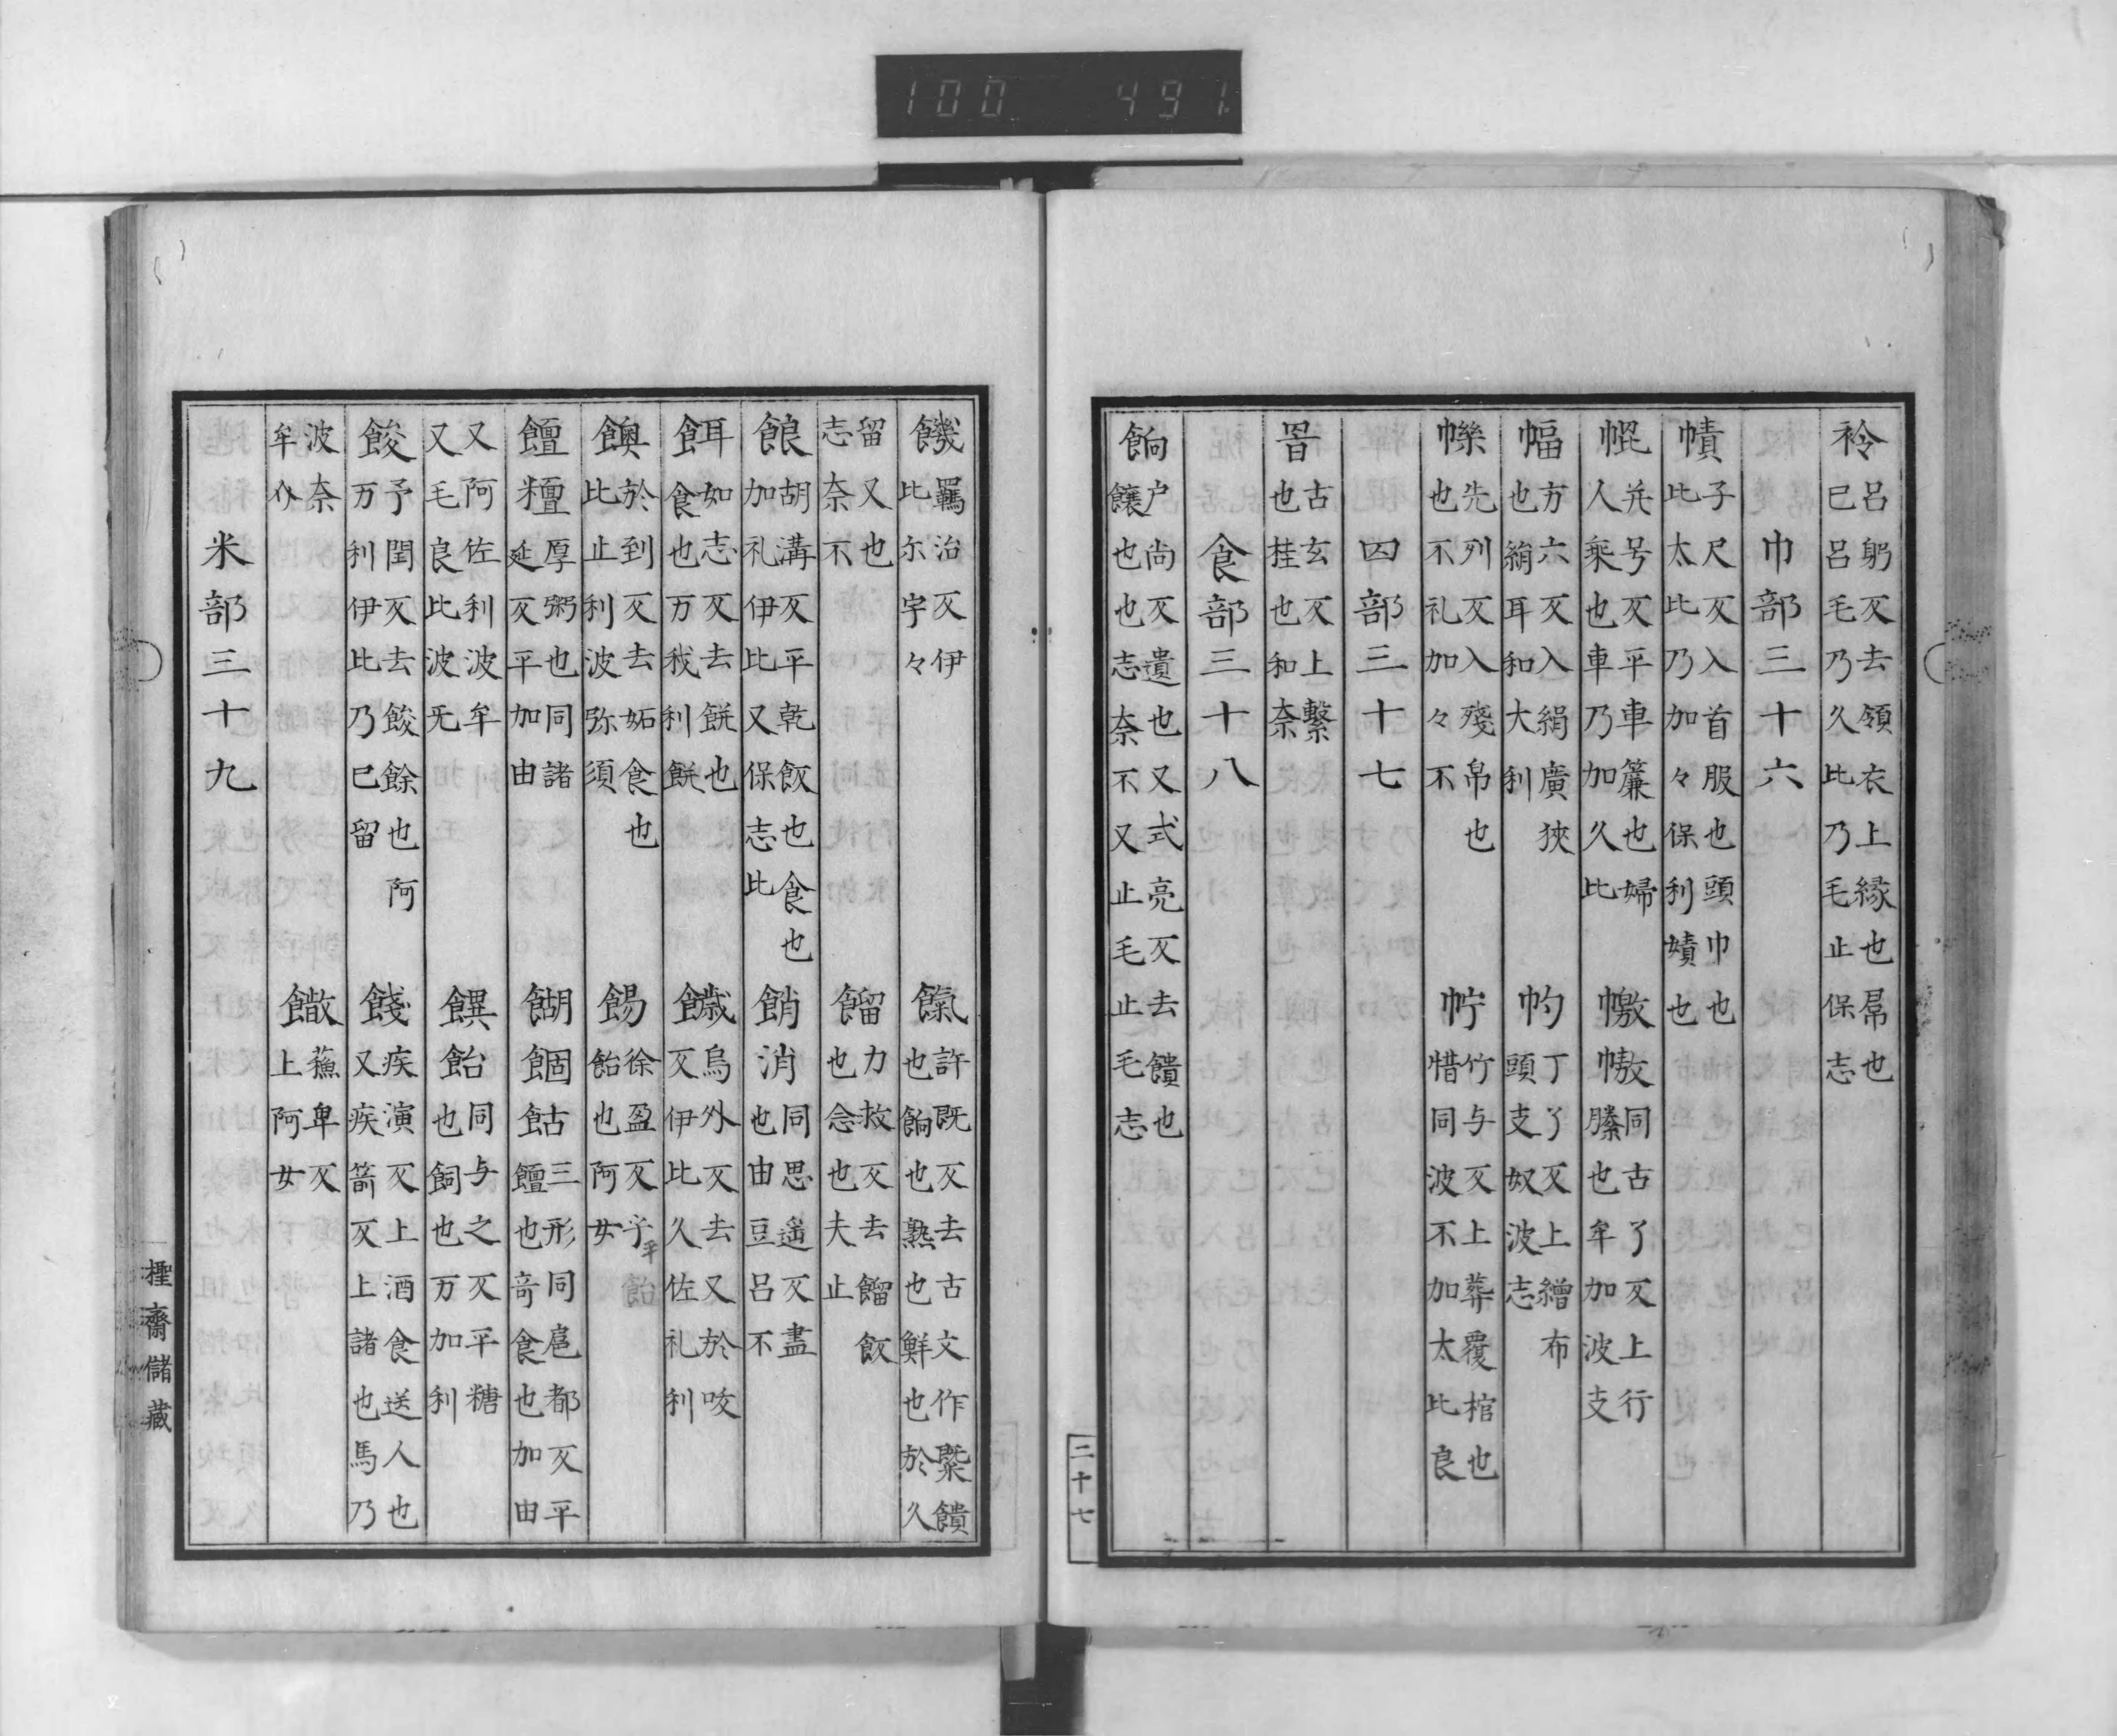 100 491
衿 呂躬反去領衣上縁也屌也
巳呂毛乃久比乃毛止保志
巾部三十六
幘 子尺反入首服也頭巾也
比太比乃加々保利㥽也
㡓 并号反平車簾也婦
人乗也車乃加久比
幜 幜同古了反上行
縢也牟加波支
幅 方六反入絹廣狭
也絹耳和大利
帉 丁了反上繒布
頭支奴波志
㡜 先列反入残帛也
也不礼加々不
㡉 竹与反上葬覆棺也
惜同波不加太比良
四部三十七
罯 古玄反上繋
也桂也和奈
食部三十八
餉 户尚反遺也又式亮反去饋也
饟也也志奈不又止毛止毛志
二十七
饑 羈治反伊
比尓宇々
餼 許既反去古文作槩饋
也餉也熟也鮮也於久
留又也
志奈不
餾 力救反去餾飯
也念也夫止
餭 胡溝反平乾飯也食也
加礼伊比又保志比
䬰 消同思遥反盡
也由豆呂不
餌 如志反去餅也
食也万我利餅
饖 烏外反去又於咬
反伊比久佐礼利
䭉 於到反去妬食也
比止利波弥須
餳 徐盈反平飴
飴也阿女
饘 糎厚粥也同諸
延反平加由
餬 䭅𩚩三形同扈都反平
饘也也竒食也加由
又阿佐利波牟
又毛良比波无
饌 飴同与之反平糖
也飼也万加利
餕 予閏反去餕餘也阿
万利伊比乃巳留
餞 疾演反上酒食送人也
又疾箭反上諸也馬乃
波奈
牟介
饊 蘓卑反
上阿女
米部三十九
㮄齋儲藏